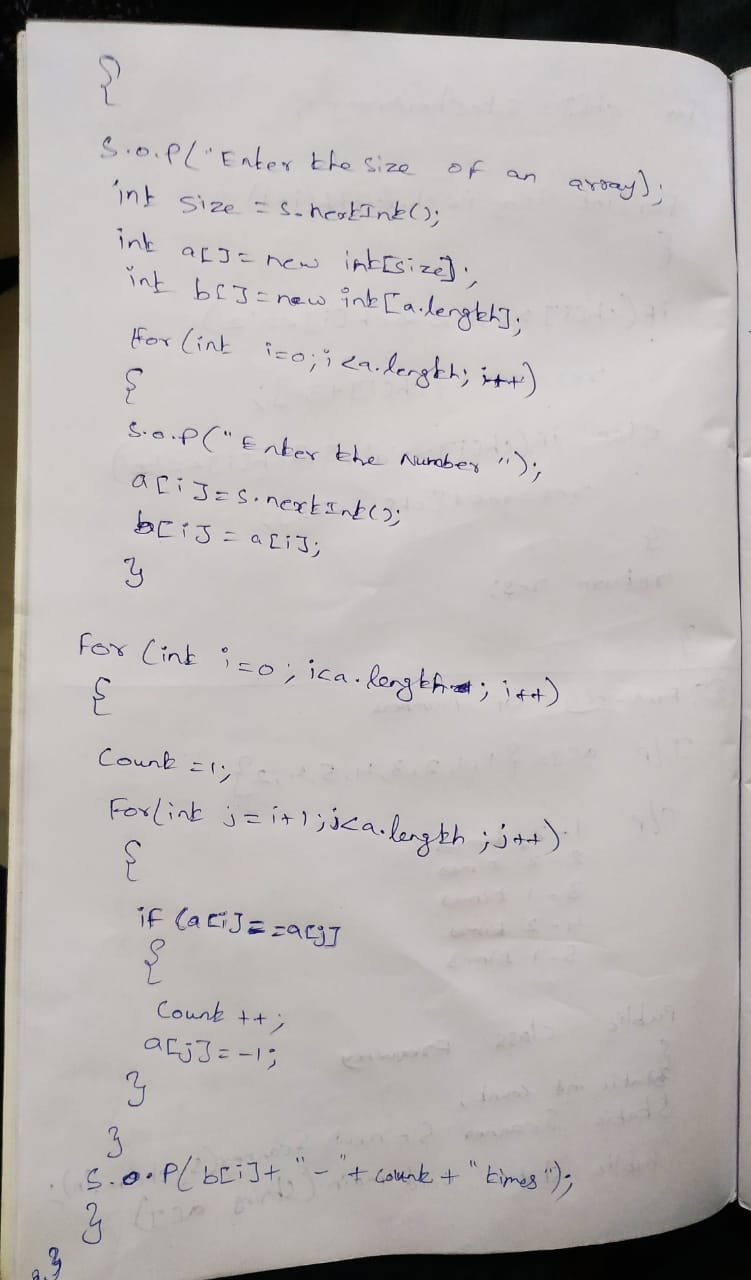 {
S.o.P("Enter the size of an array);
int size = s.nextInt();
int a[]= new int[size];
int b[]=new int[a.length];
for (int i=0; i<a.length; i++)
{
S.o.P("Enter the Number ");
a[i]=s.nextInt();
b[i]=a[i];
}
for (int i=0; i<a.length; i++)
{
Count =1;
For(int j=i+1;j<a.length ;j++)
{
if (a[i]==a[j]
{
Count ++;
a[j]=-1;
}
}
S.o.P( b[i]+ "-"+ count + "times");
}
}